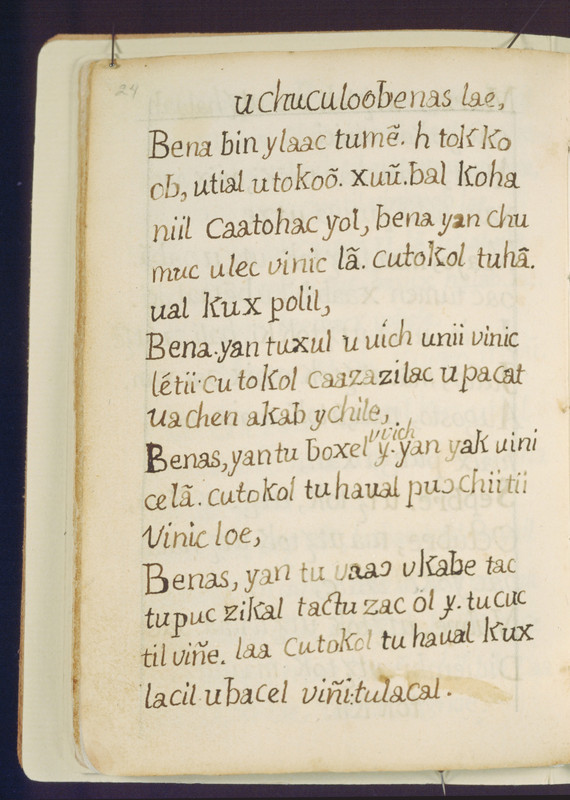 24
u chuculoobenas lae,
Bena bin ylaac tumẽ. h tok ko
ob, utial utokoõ. xuũ.bal koha
niil caatohac yol, bena yan chu
muc u lec vinic lã. cutokol tuhã.
ual kux polil,
Bena.yan tuxul u uich unii vinic
létii.cu tokol caazazilac u pacat
ua chen akab ychile,
uvich
Benas, yan tu boxel y. yan yak uini
celã. cutokol tu haual puɔ chiitii
vinic loe,
Benas, yan tu uaaɔ ukabe tac
tu puc zikal tactu zac öl y. tu cuc
til viñe. laa cutokol tu haual kux
lacil ubacel viñi:tulacal.